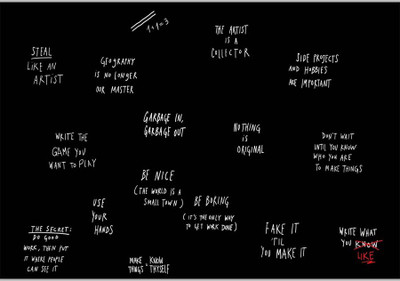 1+1=3
THE ARTIST
IS A
COLLECTOR
STEAL
LIKE AN
ARTIST
GEOGRAPHY
IS NO LONGER
OUR MASTER
SIDE PROJECTS
AND HOBBIES
ARE IMPORTANT
GARBAGE IN,
GARBAGE OUT
NOTHING
IS
ORIGINAL
WRITE THE
GAME YOU
WANT TO PLAY
DON'T WAIT
UNTIL YOU KNOW
WHO YOU ARE
TO MAKE THINGS
BE NICE
(THE WORLD IS A
SMALL TOWN)
USE
YOUR
HANDS
BE BORING
(IT'S THE ONLY WAY
TO GET WORK DONE)
THE SECRET:
DO GOOD
WORK, THEN PUT
IT WHERE PEOPLE
CAN SEE IT
MAKE THINGS
KNOW THYSELF
FAKE IT
'TIL
YOU MAKE IT
WRITE WHAT
YOU KNOW
LIKE